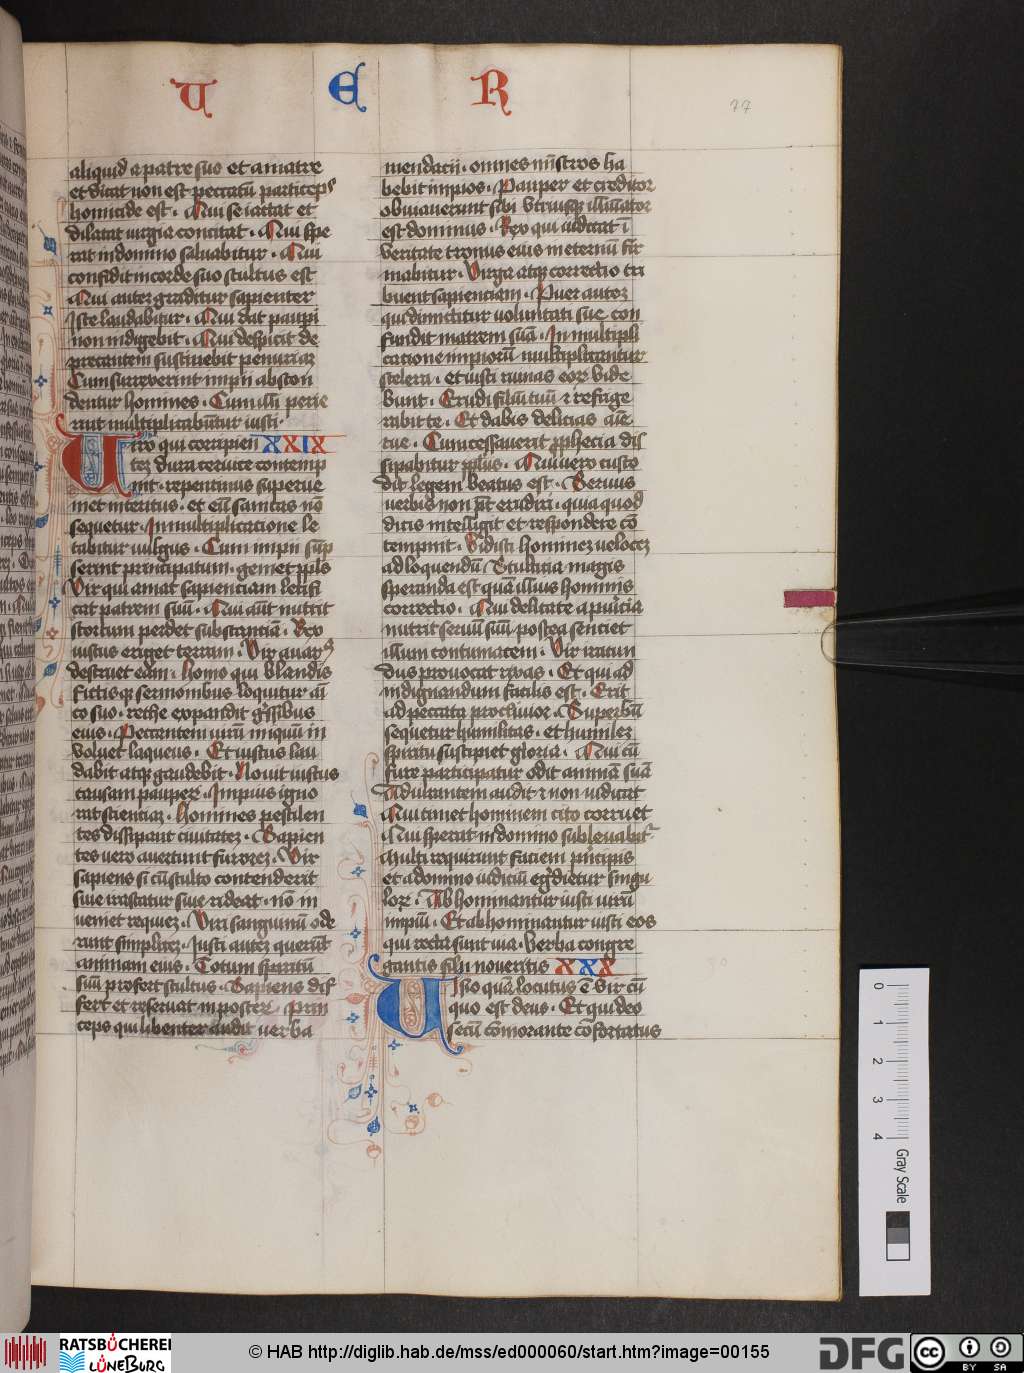 V E R
77
aliquid a patre suo et a matre
et dicat non est peccatū particeps
homicide est . Qui se iactat et
dilatat iurgia concitat . Qui spe
rat in domino saluabitur . Qui
confidit in corde suo stultus est
Qui autez graditur sapienter
Iste laudabitur . Qui dat paupi
non indigebit . Qui despicit de
precantem sustinebit penuriaz
Cum surrexerint impii abscon
dentur homines . Cum illi perie
rint multiplicabūtur iusti .
Uiro qui corripien XXIX
tez dura ceruice contemp
nit . repentinus superue
niet interitus . et eū sanitas nō
sequetur . In multiplicacione le
tabitur wlgus . Cum impii sūp
serint principatum . gemet ppls
Vir qui amat sapienciam letifi
cat patrem suū . Qui aūt nutrit
scortum perdet substanciā . Rex
iustus eriget terram . Vir auarꝰ
destruet eam . homo qui blandis
fictisqꝫ sermonibus loquitur ami
co suo . rethe expandit gressibus
eius . Peccantem virū iniquū in
voluet laqueus . Et iustus lau
dabit atqꝫ gaudebit . Nouit iustus
causam pauperū . Impius igno
rat scienciaz . homines pestilen
tes dissipant ciuitatez . Sapien
tes vero auertunt furorez . Vir
sapiens si cū stulto contenderit
siue irascatur siue rideat . nō in
veniet requiez . Viri sanguinū ode
runt simplicez . Iusti autez querūt
animam eius . Totum spiritū
suū profert stultus . Sapiens dif
fert et reseruat in posterū . Prin
ceps qui libenter audit uerba
mendacii . omnes mīstros ha
bebit impios . Pauper et creditor
obuiauerunt sibi vtriusqꝫ illūinator
est dominus . Rex qui iudicat ī
veritate tronus eius in eternū fir
mabitur . Virga atqꝫ correctio tri
buent sapienciam . Puer autez
qui dimittitur voluntati sue con
fundit matrem suā . In multipli
catione impiorū multiplicantur
scelera . et iusti ruinas eorū vide
bunt . Erudi filiū tuū et refrige
rabit te . Et dabis delicias aīe
tue . Cum cessauerit pphecia dis
sipabitur pplus . Qui vero custo
dit legem beatus est . Seruus
verbis non pōt erudiri . quia quod
dicis intelligit et respondere cō
tempnit . Vidisti hominez velocez
ad loquendū Stulticia magis
speranda est quā illius hominis
correctio . Qui delicate a puīcia
nutrit seruū suū postea senciet
illum contumacem . Vir iracun
dus prouocat rixas . Et qui ad
indignandum facilis est . Erit
ad peccata procliuior . Superbū
sequetur humilitas . et humilez
spiritu suscipiet gloria . Qui cū
fure participatur odit animā suā
Adiurantem audit et non iudicat
Qui timet hominem cito corruet
Qui sperat in domino subleuabitr
Multi requirunt faciem pīncipis
et a domino iudiciū egredietur singu
lorū . Abhominantur iusti virū
impiū . Et abhominantur iusti eos
qui recta sunt via . verba congre
gantis filii noueritis XXX
Visio quā locutus ē vir cū
quo est deus . Et qui deo
secū cōmorante cōfortatus
0
1
2
3
4
Gray Scale
RATSBÜCHEREI
LÜNEBURG
© HAB http://diglib.hab.de/mss/ed000060/start.htm?image=00155
DFG
cc BY SA